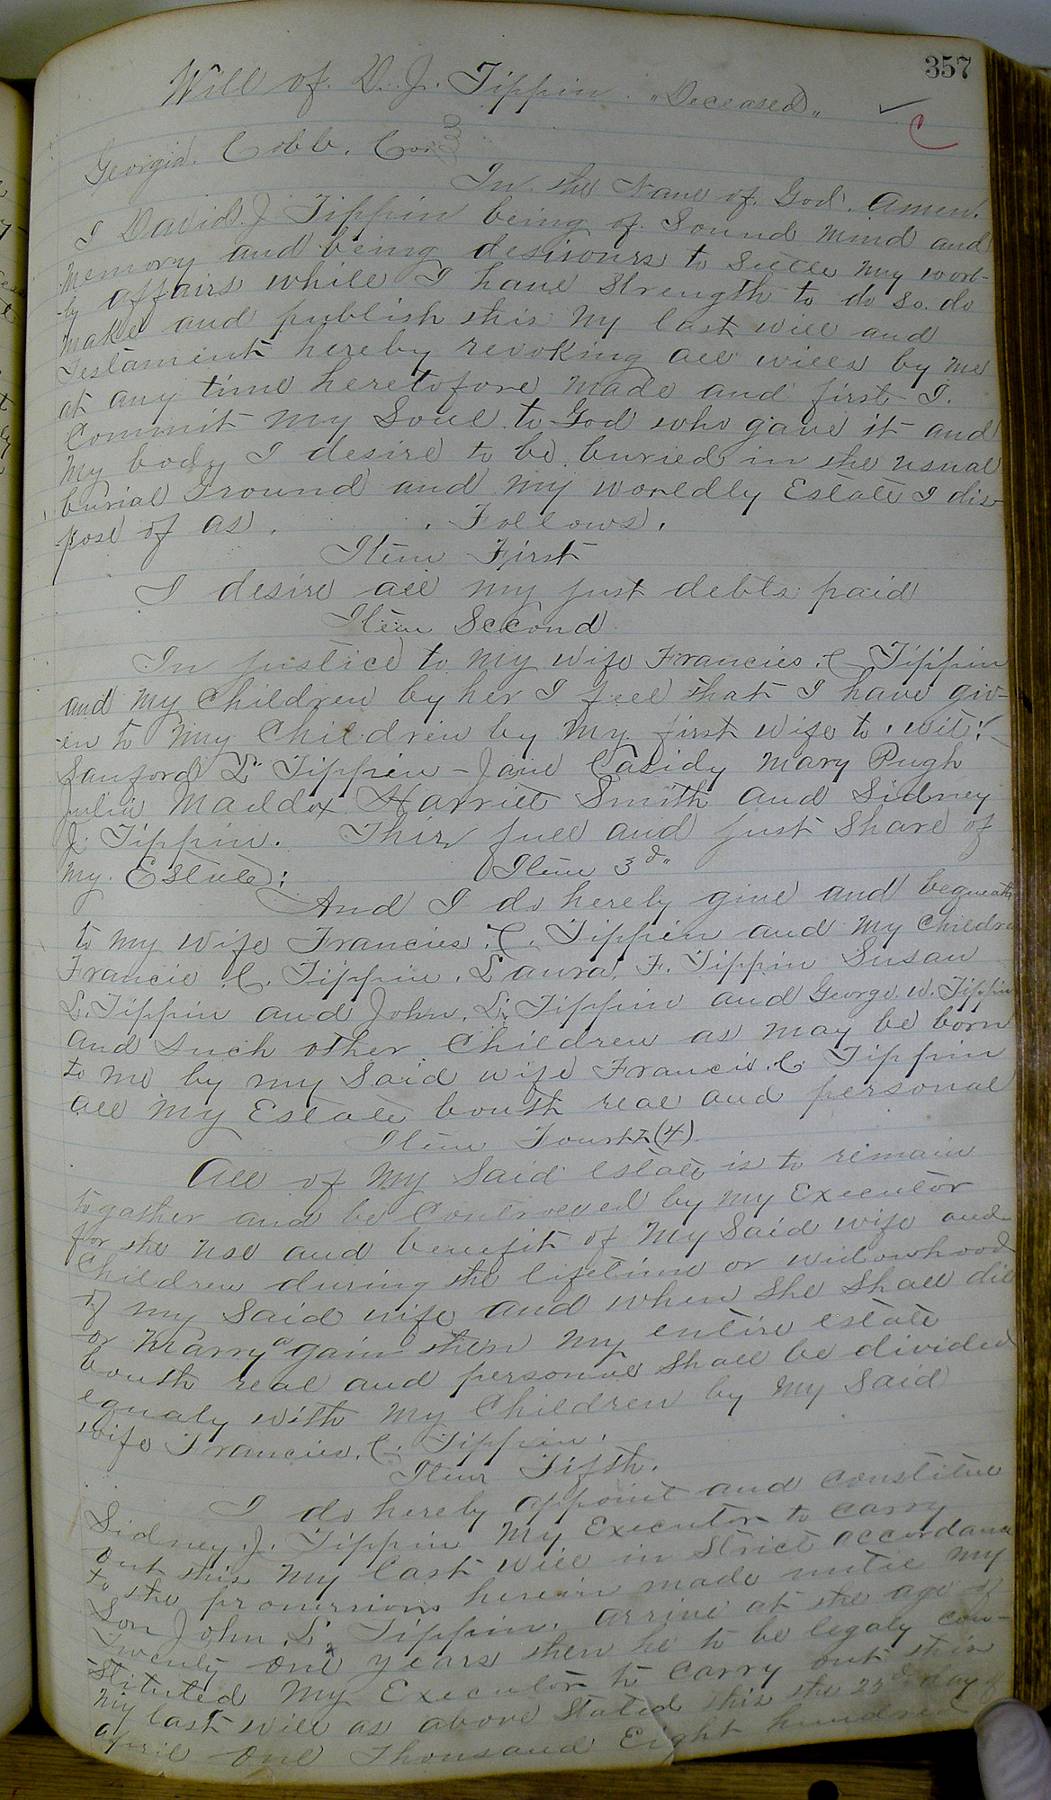 357
Will of D. J. Tippin "Deceased"
Georgia. Cobb. Co
In the Name of God. Amen.
I David J Tippin being of Sound Mind and
Memory and being desirours to Settle My worl-
ly affairs while I have Strength to do so. do
Make and publish this My last will and
Testament hereby revoking all wills by me
at any time heretofore made and first I.
Commit My Soul to God who gave it and
My body I desire to be buried in the usual
burial Ground and My worledly Estate I dis-
pose of as . . Follows.
Item First
I desire all my just debts paid
Item Second
In justice to My wife Francies. C Tippin
and My Children by her I feel that I have giv-
en to My Children by My first wife to wit:
Sanford L Tippin - Jane Casidy Mary Pugh
Julia Maddox Harriet Smith and Sidney
J. Tippin. Thir full and just Share of
My Estate: Item 3d"
And I do hereby give and bequeath
to My wife Francies. C. Tippin and My Children
Francie C. Tippin. Laura. F. Tippin Susan
L. Tippin and John. L. Tippin and George. W. Tippin
and Such other Children as may be born
to Me by my Said wife Francis. C Tippin
all My Estate bouth real and personal
Item Fourth (4)
All of My Said estate is to remain
togather and be Controeled by My Executor
for the use and benefit of My Said wife and
Children during the lifetime or widowhood
of my Said wife and when She Shall die
or Marry a gain then My entire estate
bouth real and personal Shall be divided
equaly with My Children by My Said
wife Francies. C. Tippin.
Item Fifth.
I do hereby appoint and Constitue
Sidney. J. Tippin My Executor to Carry
out this My last will in Strict accordance
to the provisions herein made until My
Son John. L. Tippin. arrive at the age of
Twenty one years then he to be legaly con-
stituted My Executor to Carry out this
My last will as above Stated this the 23d day of
April One Thousand Eight hundred